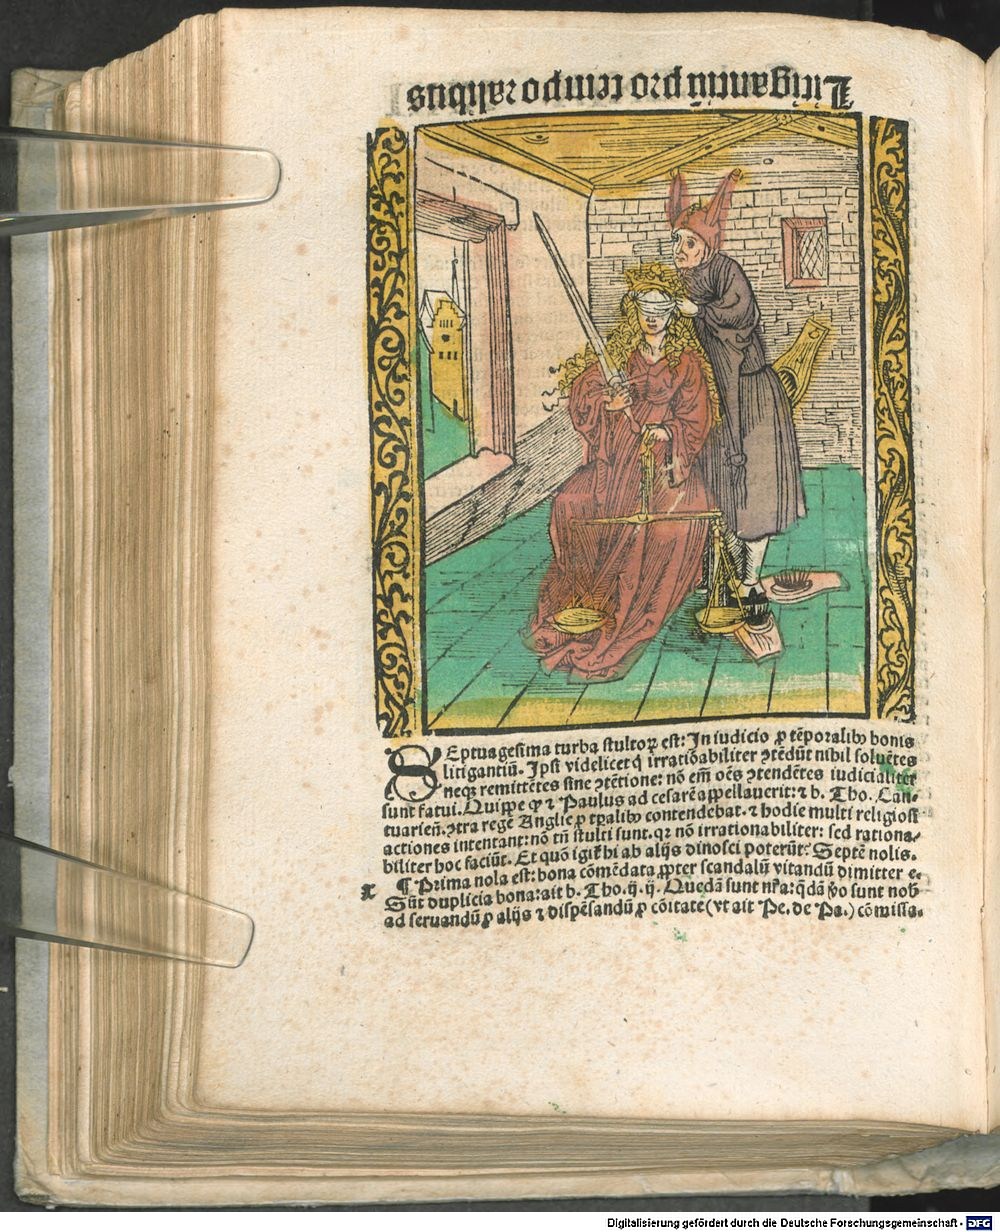 Litigantiũ pro temporalibus
SEptuagesima turba stultoꝝ est: In iudicio ꝓ tẽporalibꝰ bonis
litigantiũ. Ipsi videlicet q̇ irratiõabiliter ꝯtẽdũt nihil soluẽtes
neqꝫ remittẽtes sine ꝯtẽtione: nõ em̃ oẽs ꝯtendẽtes iudicialiter
sunt fatui. Quippe qꝛ ⁊ Paulus ad cesarẽ appellauerit: ⁊ b. Tho. Can-
tuarieñ. ꝯtra regẽ Anglie ꝓ tꝑalibꝰ contendebat. ⁊ hodie multi religiosi
actiones intentant: nõ tñ stulti sunt. qꝛ nõ irrationabiliter: sed rationa-
biliter hoc faciũt. Et quõ igit̃ hi ab alijs dinosci poterũt: Septẽ nolis.
x ¶ Prima nola est: bona cõmẽdata ꝓpter scandalũ vitandũ dimitter e.
Sũt duplicia bona: ait b. Tho. ij. ij. Quedã sunt nr̃a: q̃dã ṽo sunt nob̃
ad seruandũ ꝓ alijs ⁊ dispẽsandũ ꝓ cõitate (vt ait Pe. de Pa.) cõmissa.
Digitalisierung gefördert durch die Deutsche Forschungsgemeinschaft - DFG